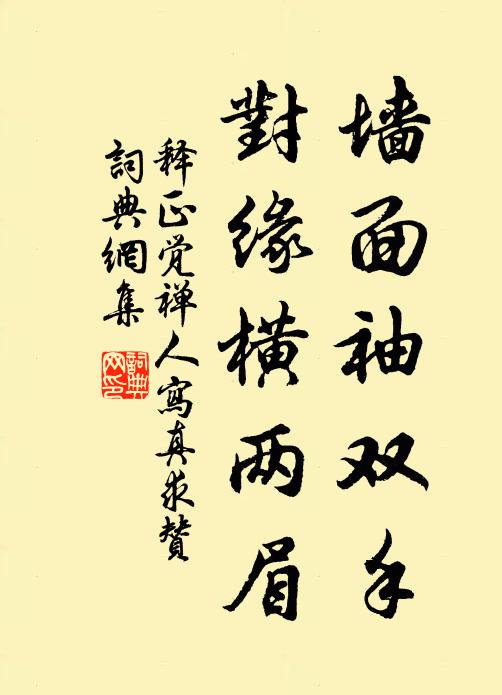 墙面袖双手
對缘横两眉
释正觉禅人寫真求赞
詞典網集
詞典网印